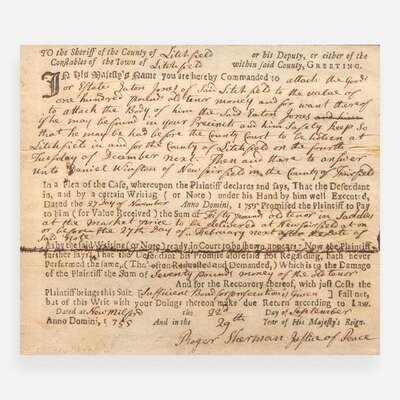 TO the Sheriff of the County of Litchfield or his Deputy, or either of the
Constables of the Town of Litchfield within said County, GREETING.
IN His Majesty's Name you are hereby Commanded to attach the Goods
or Estate Eaton Jones of Said Litchfield to the value of
one hundred pounds old tenor money and for want thereof
to attach the Body of him the Said Eaton Jones
if he may be found in your Precincts and him Safely keep So
that he may be had before the County Court to be holden at
Litchfield in and for the County of Litchfield on the fourth
Tuesday of December next. Then and there to answer
unto Daniel Winston of Newfairfield in the County of Fairfield
In a Plea of the Case, whereupon the Plaintiff declares and says, That the Defendant
in, and by a certain Writing (or Note) under his Hand by him well Executed,
Dated the 27 day of November Anno Domini, 1751 Promised the Plaintiff to Pay
to him (for Value Received) the Sum of Fifty pounds old tenor in Saddles
at the market price to be delivered at Newfairfield at on
or before the 27th Day of February next after the date of
Said Note
as by the said Writing (or Note) ready in Court to be shewn appears: Now the Plaintiff
further saith, That the Defendant his Promise aforesaid not Regarding, hath never
Performed the same, (Tho' often Requested and Demanded,) Which is to the Damage
of the Plaintiff the Sum of Seventy pounds money of the old tenor
And for the Reccovery thereof, with just Costs the
Plaintiff brings this Suit. [Sufficient Bond for prosecution is Given] Fail not,
but of this Writ with your Doings thereof make due Return according to Law.
Dated at New milford the 22d Day of September
Anno Domini, 1755 And in the 29th Year of His Majesty's Reign.
Roger Sherman Justice of Peace